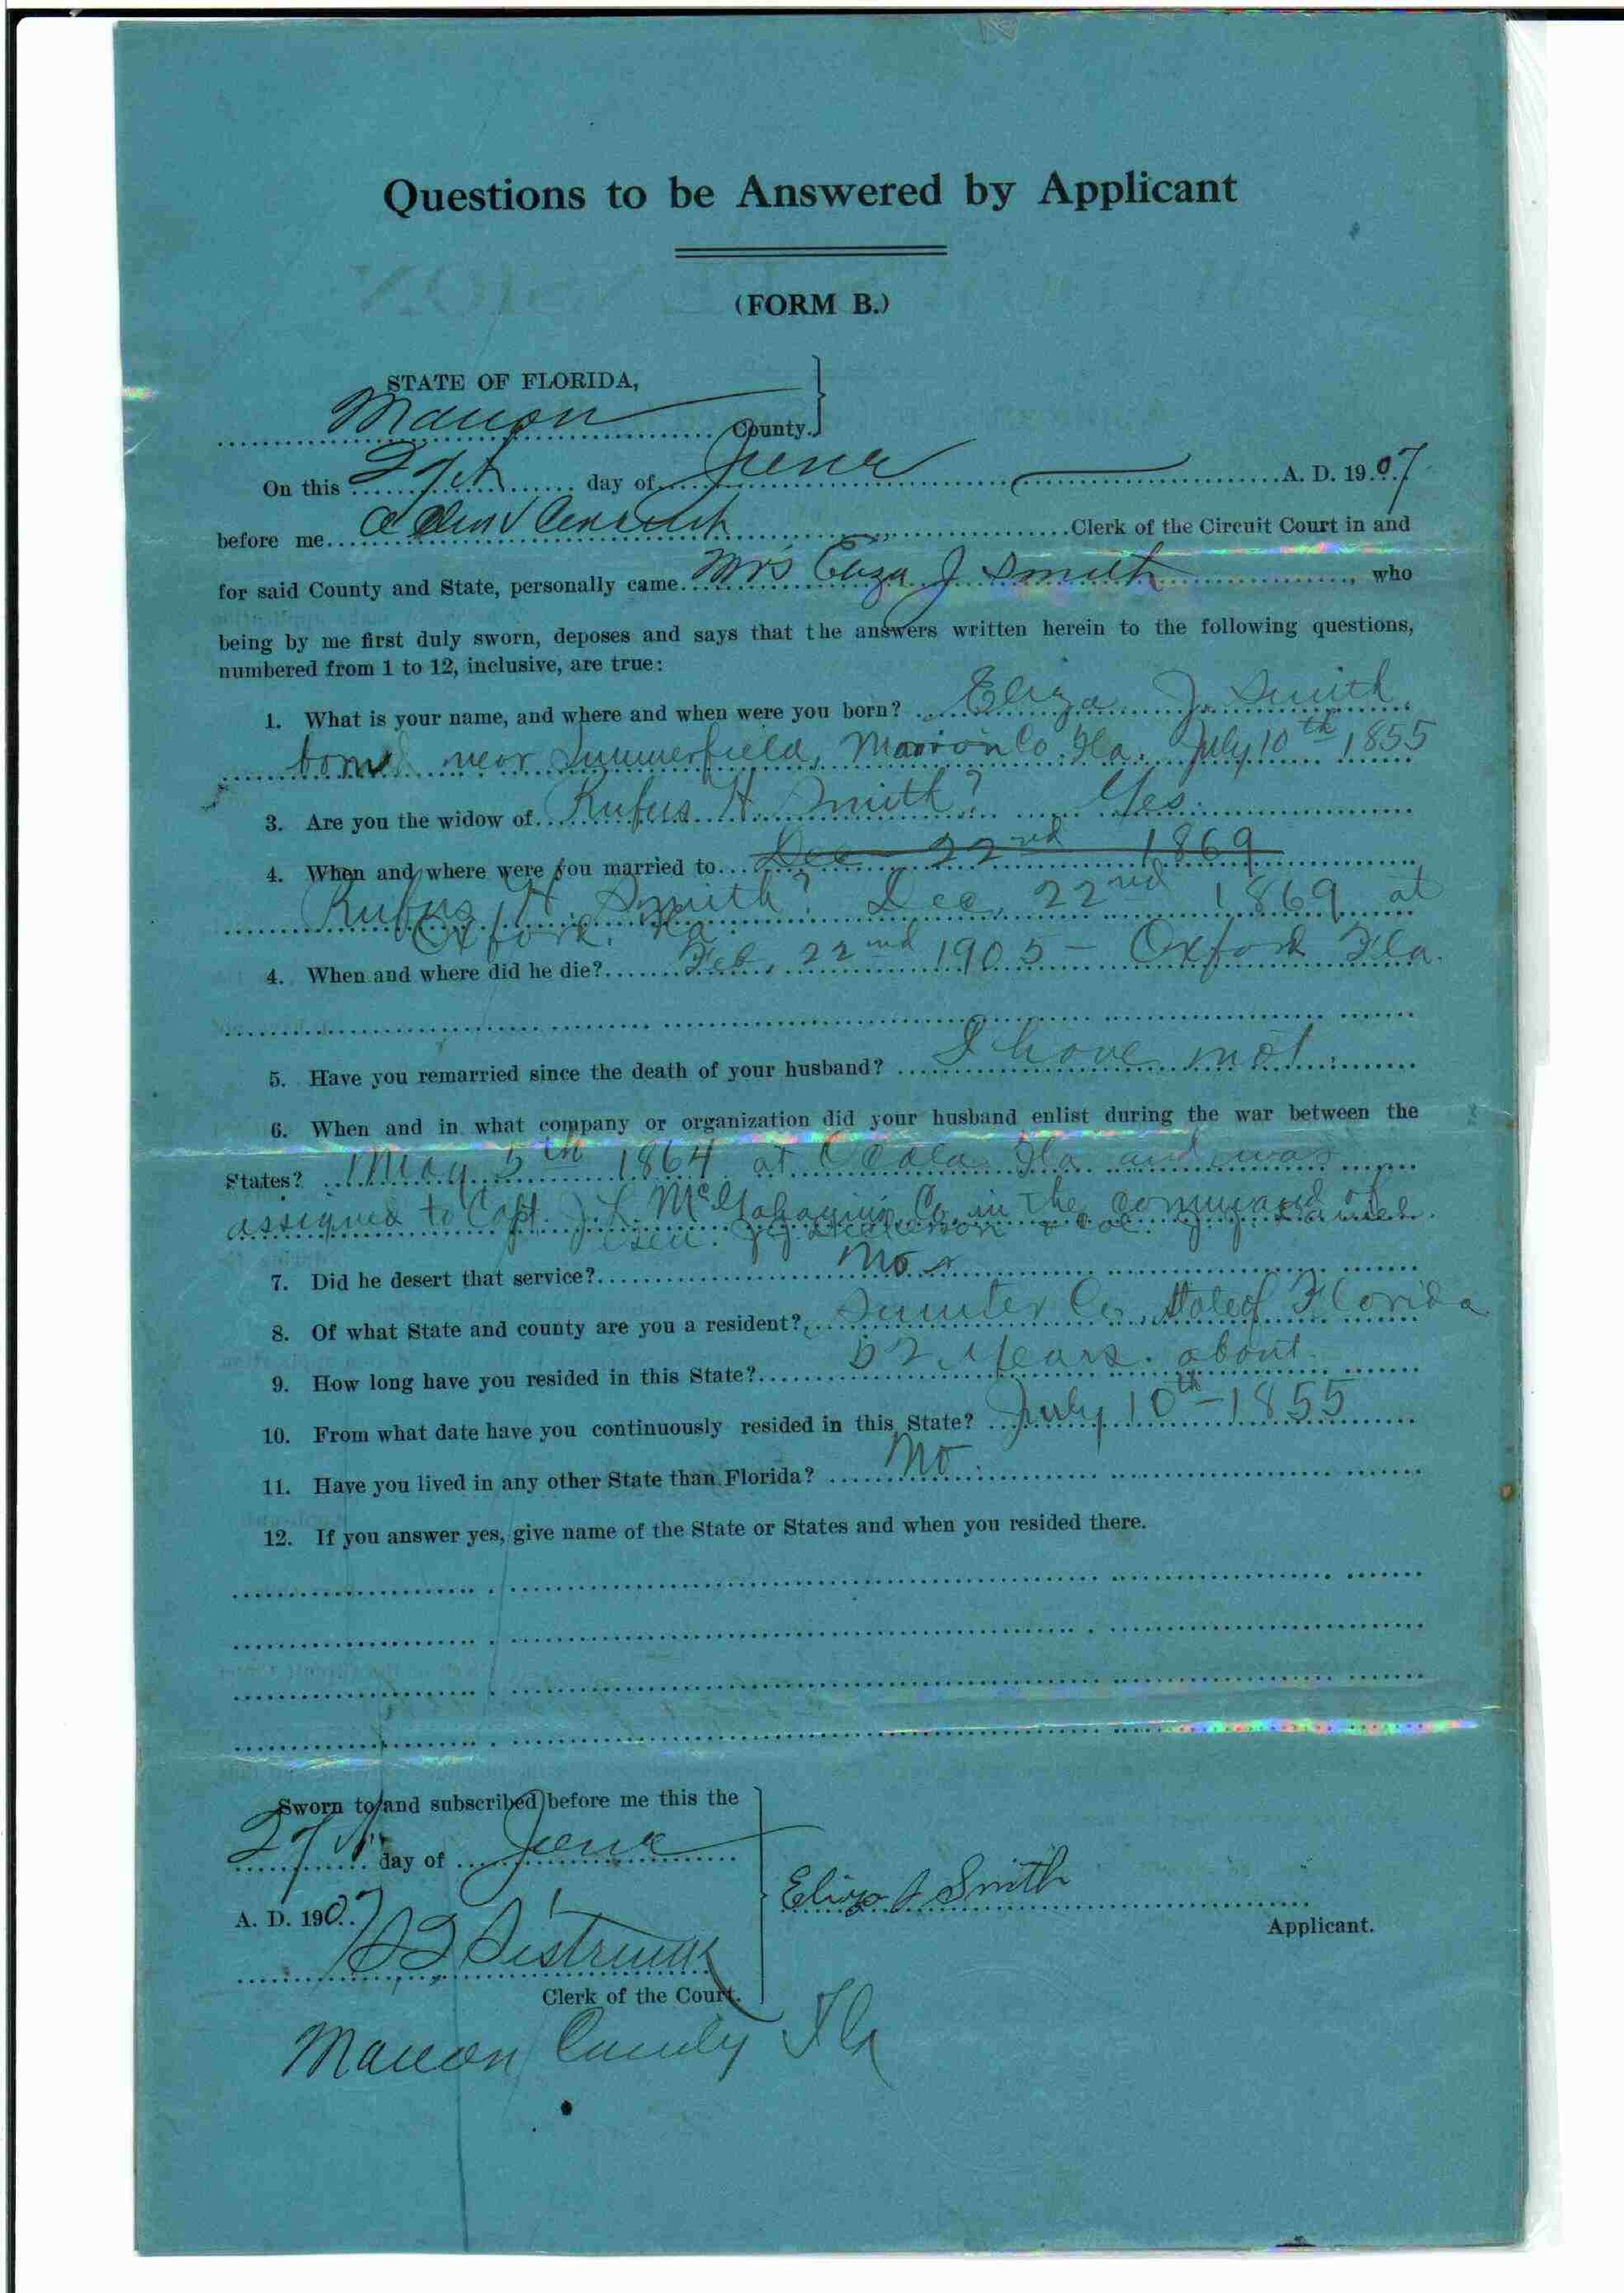 Questions to be Answered by Applicant
(FORM B.)
STATE OF FLORIDA,
Marion County.
On this 27th day of June A. D. 1907
before me Clerk of the Circuit Court in and
for said County and State, personally came Mrs Eliza J Smith, who
being by me first duly sworn, deposes and says that the answers written herein to the following questions,
numbered from 1 to 12, inclusive, are true:
1. What is your name, and where and when were you born? Eliza J. Smith
born near Summerfield, Marion Co. Fla. July 10th 1855
3. Are you the widow of Rufus H. Smith? Yes.
4. When and where were you married to Dec 22nd 1869
Rufus H. Smith? Dec. 22nd 1869 at
Oxford, Fla.
4. When and where did he die? Feb. 22nd 1905 - Oxford Fla.
5. Have you remarried since the death of your husband? I have not.
6. When and in what company or organization did your husband enlist during the war between the
States? May 5th 1864 at Ocala Fla and was
assigned to Capt. J. L. McGahagin's Co. in the command of
Gen. Dickerson & Col.
7. Did he desert that service? No
8. Of what State and county are you a resident? Sumter Co. State of Florida
9. How long have you resided in this State? 52 years. about.
10. From what date have you continuously resided in this State? July 10th - 1855
11. Have you lived in any other State than Florida? No.
12. If you answer yes, give name of the State or States and when you resided there.
Sworn to and subscribed before me this the
27th day of June
A. D. 1907
Eliza J Smith
Applicant.
Clerk of the Court.
Marion County Fla